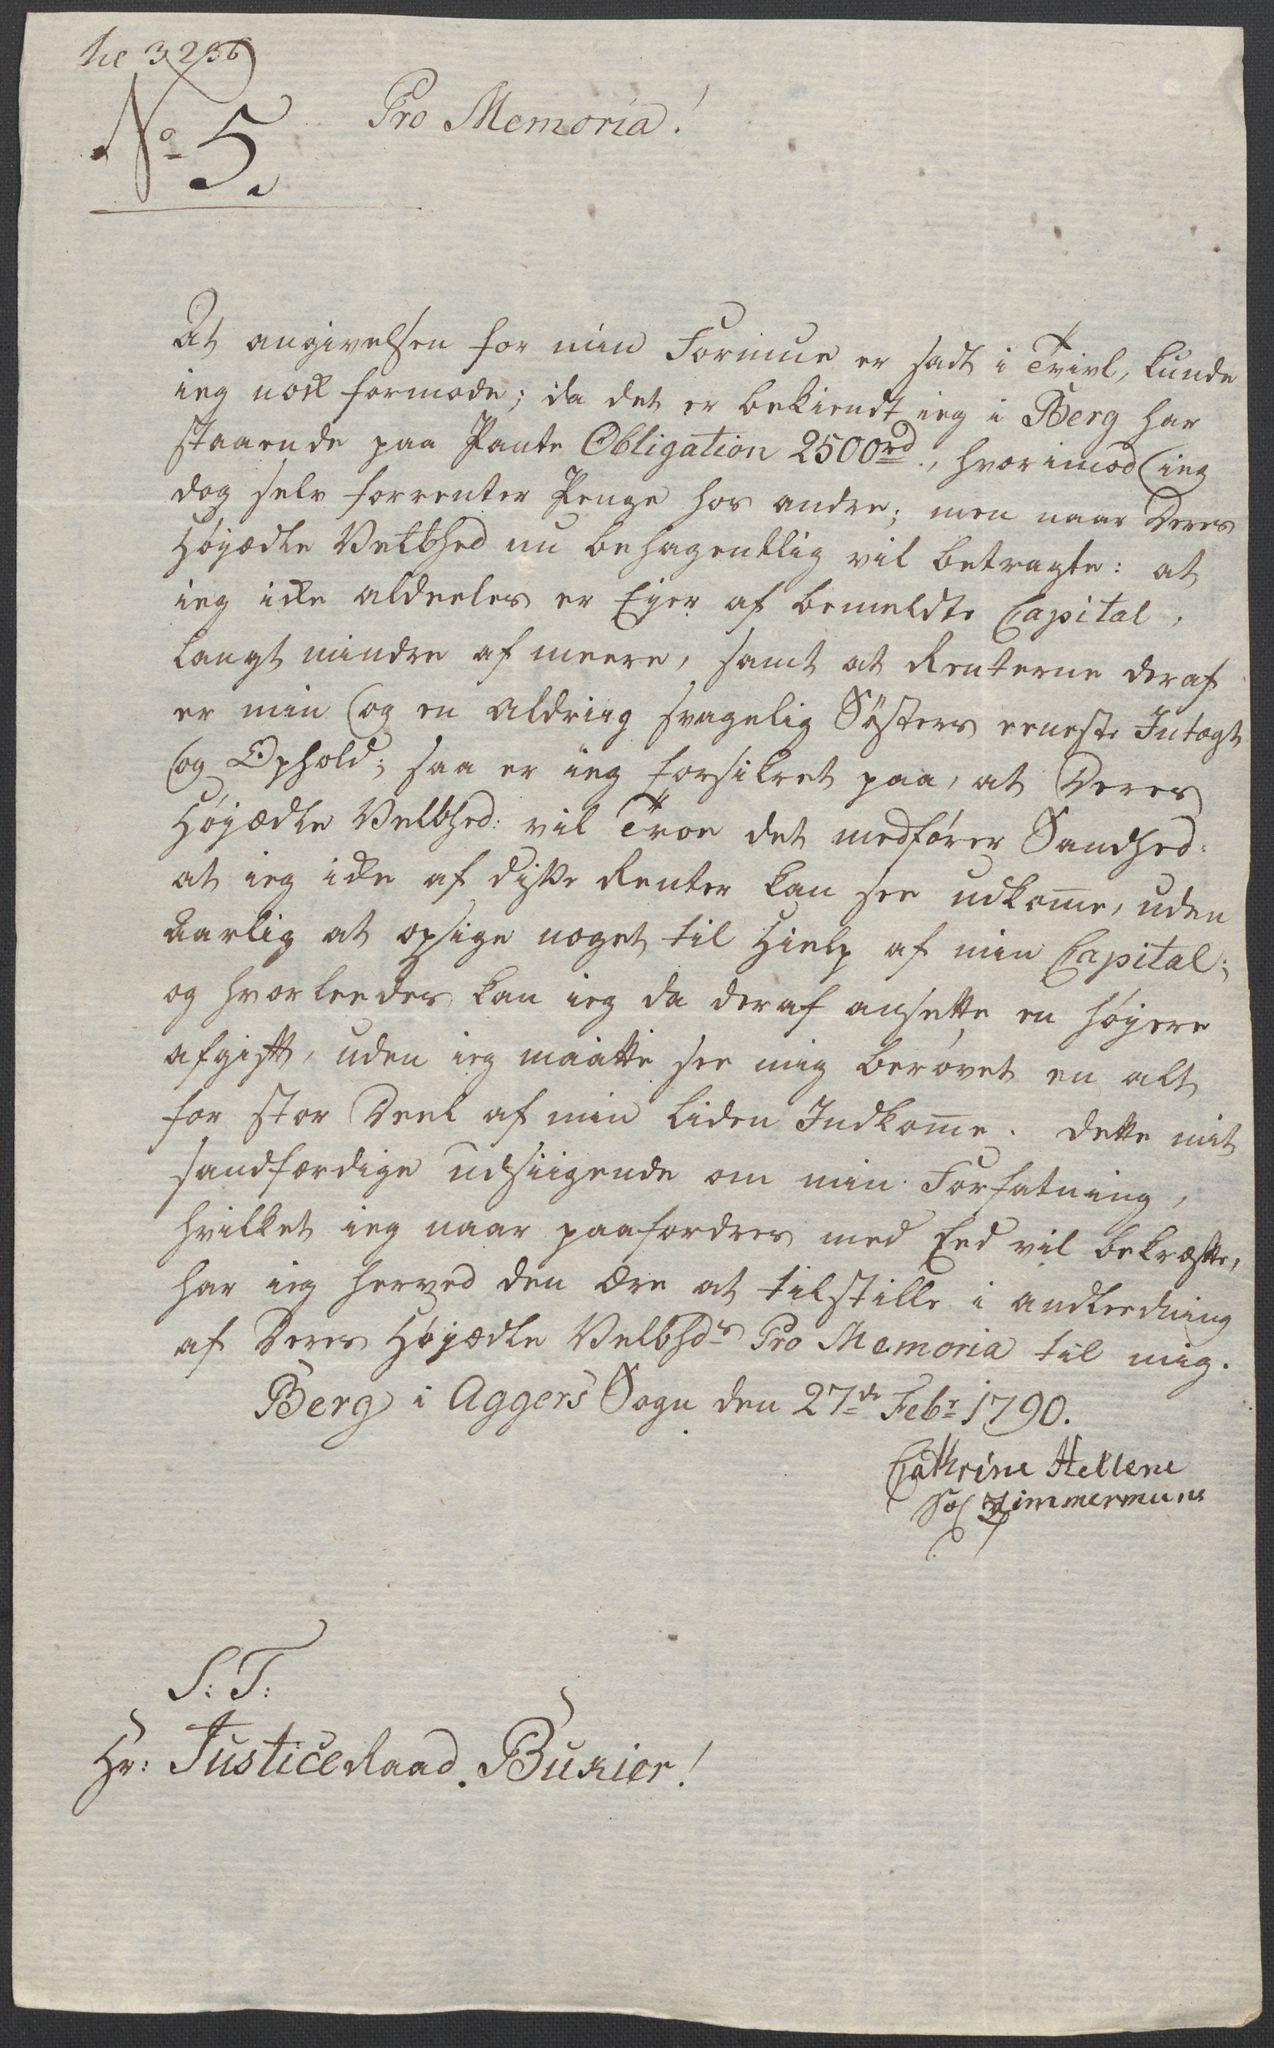 No 5.
Pro Memoria!
At angivelsen for min Formue er sadt i Tvivl, kunde
ieg nok formode; da det er bekiendt ieg i Berg har
staaende paa Pante Obligation 2500rd, hvorimod ieg
dog selv forrenter Penge hos andre; men naar Deres
Høyædle Velbhed nu behagentlig vil betragte: at
ieg ikke aldeeles er Eyer af bemeldte Capital,
langt mindre af meere, samt at Renterne deraf
er min og en aldriig svagelig Søsters eeneste Intægt
og Ophold; saa er ieg forsikret paa, at Deres
Høyædle Velbhed: vil Troe det medfører Sandhed:
at ieg ikke af disse Renter kan see udkom̄e, uden
Aarlig at opsige noget til Hielp af min Capital;
og hvorleedes kan ieg da deraf ansette en høyere
afgift, uden ieg maatte see mig berøvet en alt
for stor Deel af min liden Indkom̄e. Dette mit
sandfærdige udsiigende om min Forfatning,
hvilket ieg naar paafordres med Eed vil bekræfte,
har ieg herved den Ære at tilstille i andleedning
af Deres Høyædle Velbhds Pro Memoria til mig.
Berg i Aggers Sogn den 27de Febr 1790.
Cathrine Hellene
Sal Zimmermans
S: T:
Hr: Justice Raad Buxier!